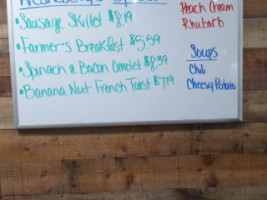 Sausage Skillet $8.19
• Farmer's Breakfast $5.59
• Spinach & Bacon Omelet $8.39
• Banana Nut French Toast $7.19
Peach Cream
Rhubarb
Soups
Chili
Cheesy Potato